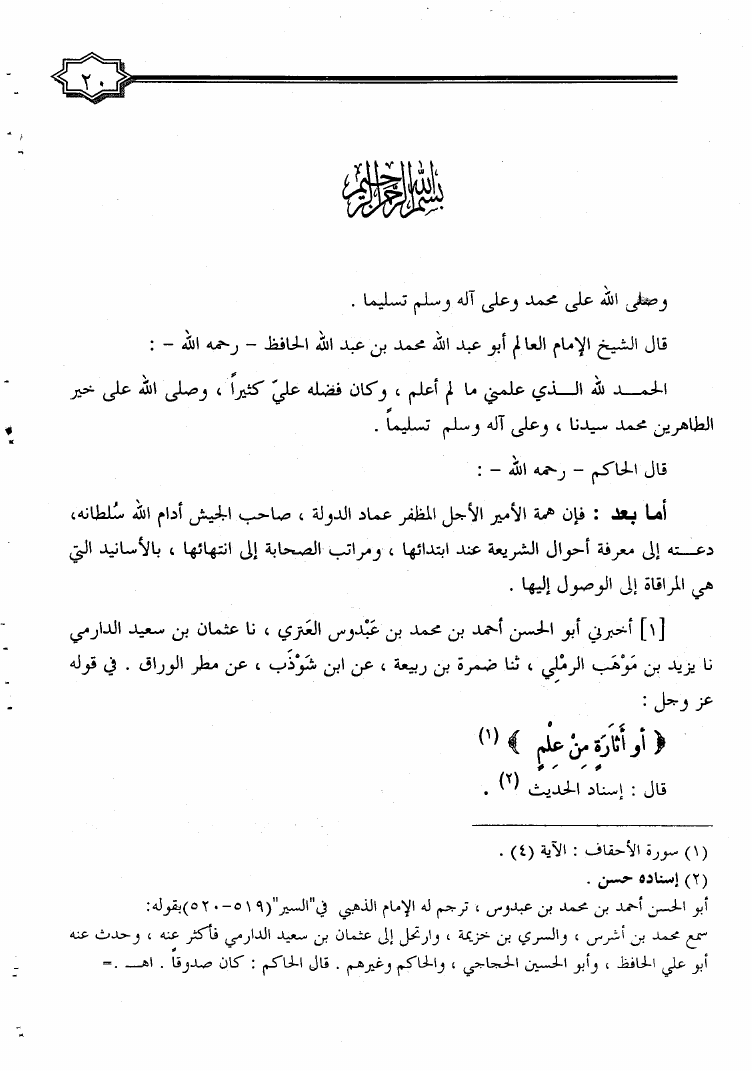 ٢٠
بسم الله الرحمن الرحيم
وصلى الله على محمد وعلى آله وسلم تسليما .
قال الشيخ الإمام العالم أبو عبد الله محمد بن عبد الله الحافظ – رحمه الله – :
الحمـــد لله الـــذي علمني ما لم أعلم ، وكان فضله عليّ كثيراً ، وصلى الله على خير
الطاهرين محمد سيدنا ، وعلى آله وسلم تسليماً .
قال الحاكم – رحمه الله – :
أما بعد : فإن همة الأمير الأجل المظفر عماد الدولة ، صاحب الجيش أدام الله سُلطانه،
دعـــته إلى معرفة أحوال الشريعة عند ابتدائها ، ومراتب الصحابة إلى انتهائها ، بالأسانيد التي
هي المراقاة إلى الوصول إليها .
[١] أخبرني أبو الحسن أحمد بن محمد بن عَبْدوس العَنَزي ، نا عثمان بن سعيد الدارمي
نا يزيد بن مَوْهَب الرمْلي ، ثنا ضمرة بن ربيعة ، عن ابن شَوْذَب ، عن مطر الوراق . في قوله
عز وجل :
﴿ أو أَثَارَةٍ مِنْ عِلْمٍ ﴾ (١)
قال : إسناد الحديث (٢) .
(١) سورة الأحقاف : الآية (٤) .
(٢) إسناده حسن .
أبو الحسن أحمد بن محمد بن عبدوس ، ترجم له الإمام الذهبي في"السير"(٥١٩–٥٢٠)بقوله:
سمع محمد بن أشرس ، والسري بن خزيمة ، وارتحل إلى عثمان بن سعيد الدارمي فأكثر عنه ، وحدث عنه
أبو علي الحافظ ، وأبو الحسين الحجاجي ، والحاكم وغيرهم . قال الحاكم : كان صدوقاً . اهـــ . =